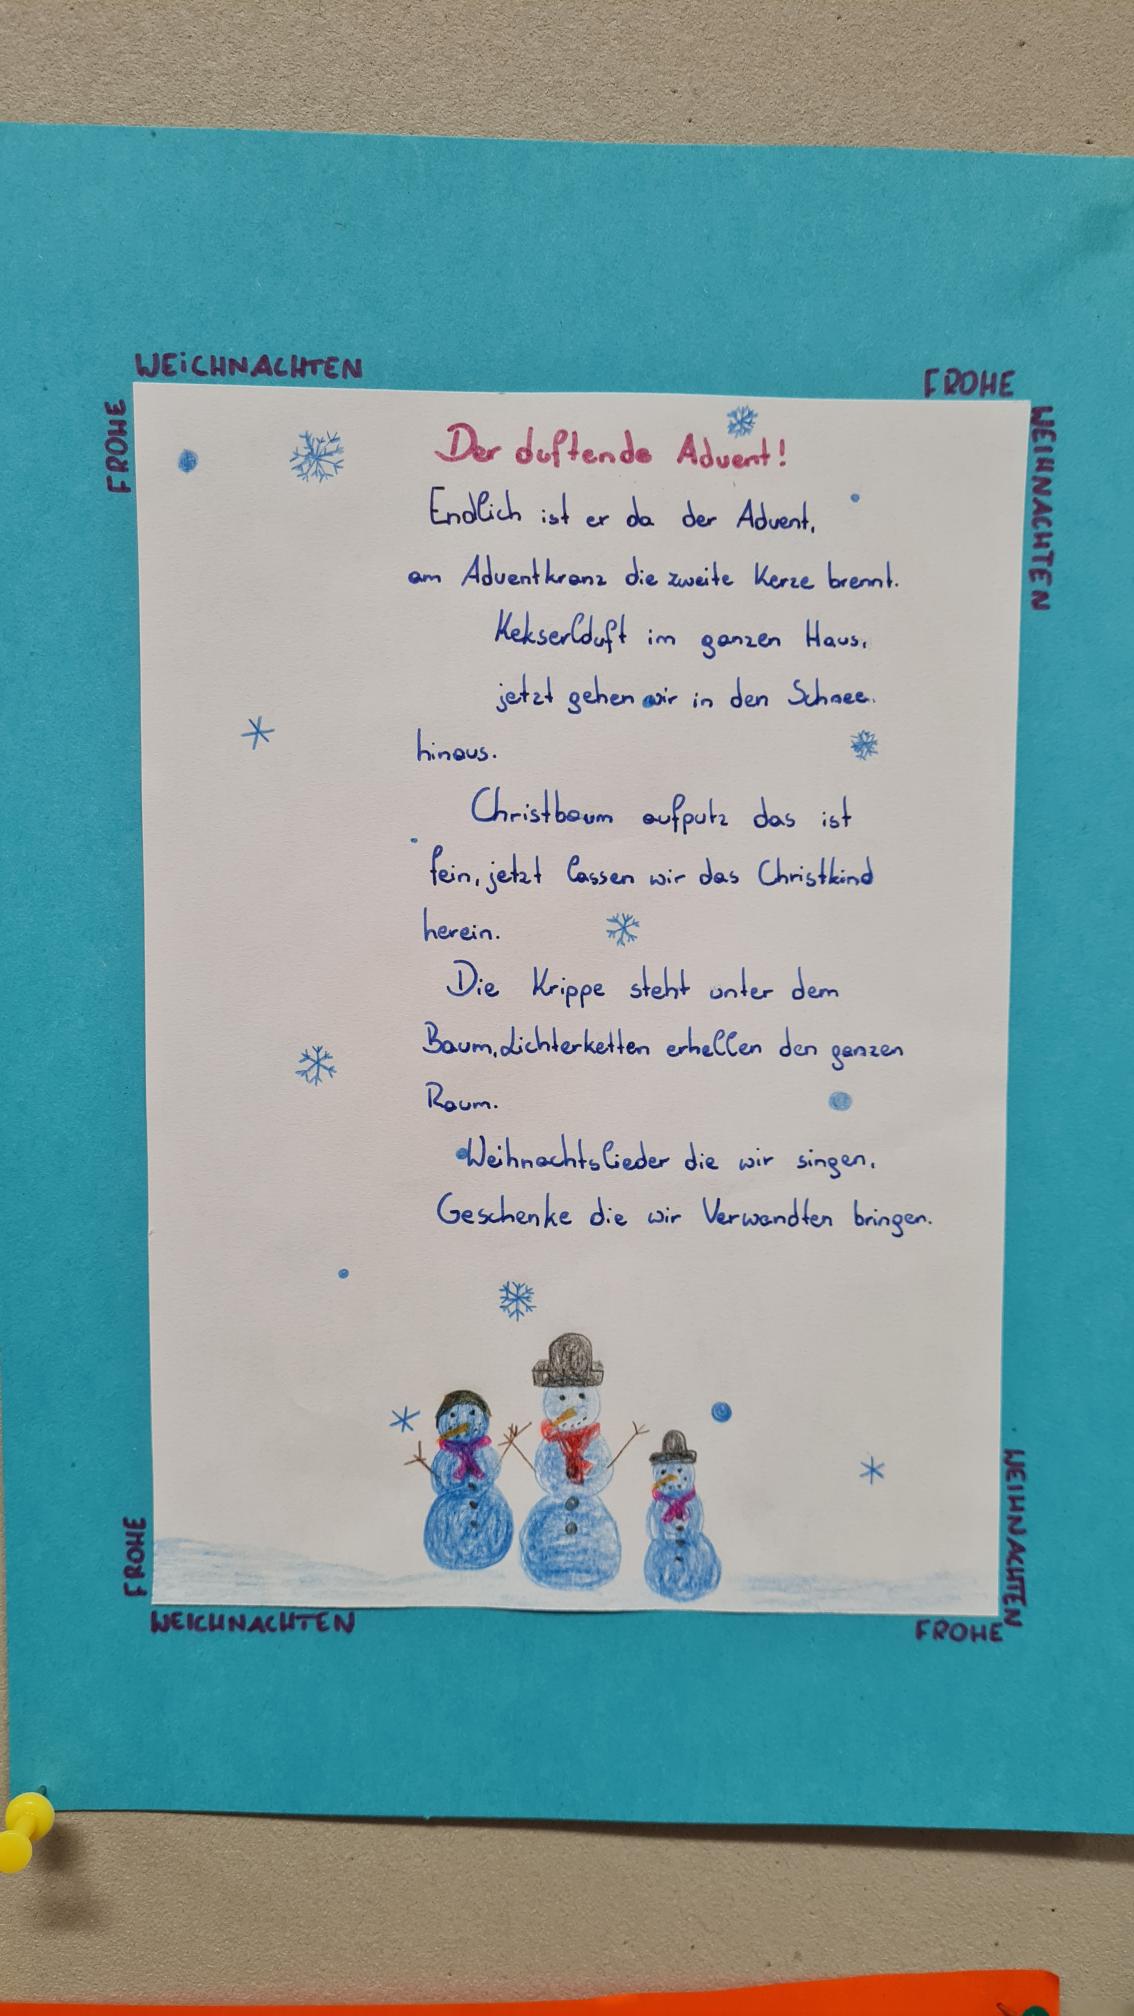 WEICHNACHTEN
FROHE
FROHE
WEIHNACHTEN
Der duftende Advent!
Endlich ist er da der Advent,
am Adventkranz die zweite Kerze brennt.
Kekserlduft im ganzen Haus,
jetzt gehen wir in den Schnee
hinaus.
Christbaum aufputz das ist
fein, jetzt lassen wir das Christkind
herein.
Die Krippe steht unter dem
Baum, Lichterketten erhellen den ganzen
Raum.
Weihnachtslieder die wir singen,
Geschenke die wir Verwandten bringen.
FROHE
WEICHNACHTEN
FROHE
WEIHNACHTEN